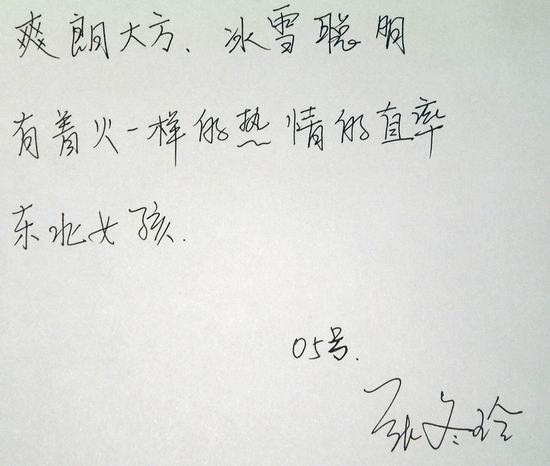 爽朗大方、冰雪聪明
有着火一样的热情的直率
东北女孩.
05号.
张冬玲